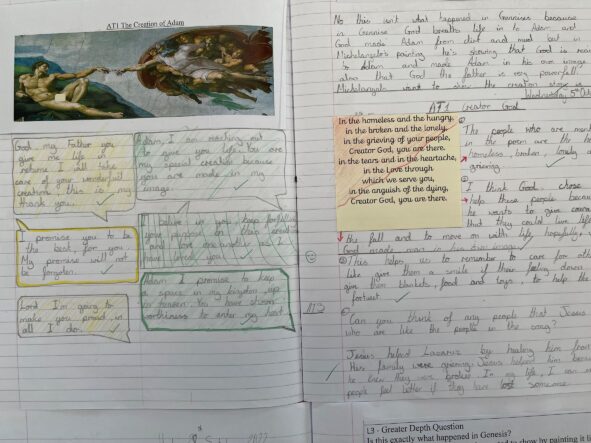 AT1 The Creation of Adam
God, my Father you
give me life in
return I will take
care of your wonderfull
creation, this is my
thank you.
Adam, I am reaching out
to give you life. You are
my special creation because
you are made in my
image.
I promise to be
the best for you.
My promise will not
be forgoten.
I believe in you, keep
your mission on
and love one another as I
have loved you.
Lord I'm going to
make you proud in
all I do.
Adam I promise to keep
a space in my kingdom up
in heaven. You have shown
worthiness to enter my heart
No this isn't what happened in because
in God breaths life in to Adam and
God made Adam from dirt and mud but in
Michelangelo's painting he's showing that God is
to Adam and made Adam in his own image
also that God the father is very powerfull.
Michelangelo want to show the creation
Wednesday, 5th
AT1 Creator God
In the homeless and the hungry,
in the broken and the lonely,
in the grieving of your people,
Creator God, you are there.
in the tears and in the heartache,
in the Love through
which we serve you,
in the anguish of the dying,
Creator God, you are there.
The people who are
in the poem are the
homeless, broken, lonely
grieving.
I think God chose
help these people
he wants to give
that they could live
the fall and to move on with life hopefully,
God made man in his own image
This helps us to remember to care for
like give them a smile if their feeling down
give them blankets, food and toys, to help the
Can you think of any people that Jesus
who are like the people in the song?
Jesus helped Lazarus by healing him from
Her family were grieving. Jesus helped him
he knew they were broken. In my life, I can
people feel better if they have lost someone
L3 - Greater Depth Question
Is this exactly what happened in Genesis?
to show by painting it